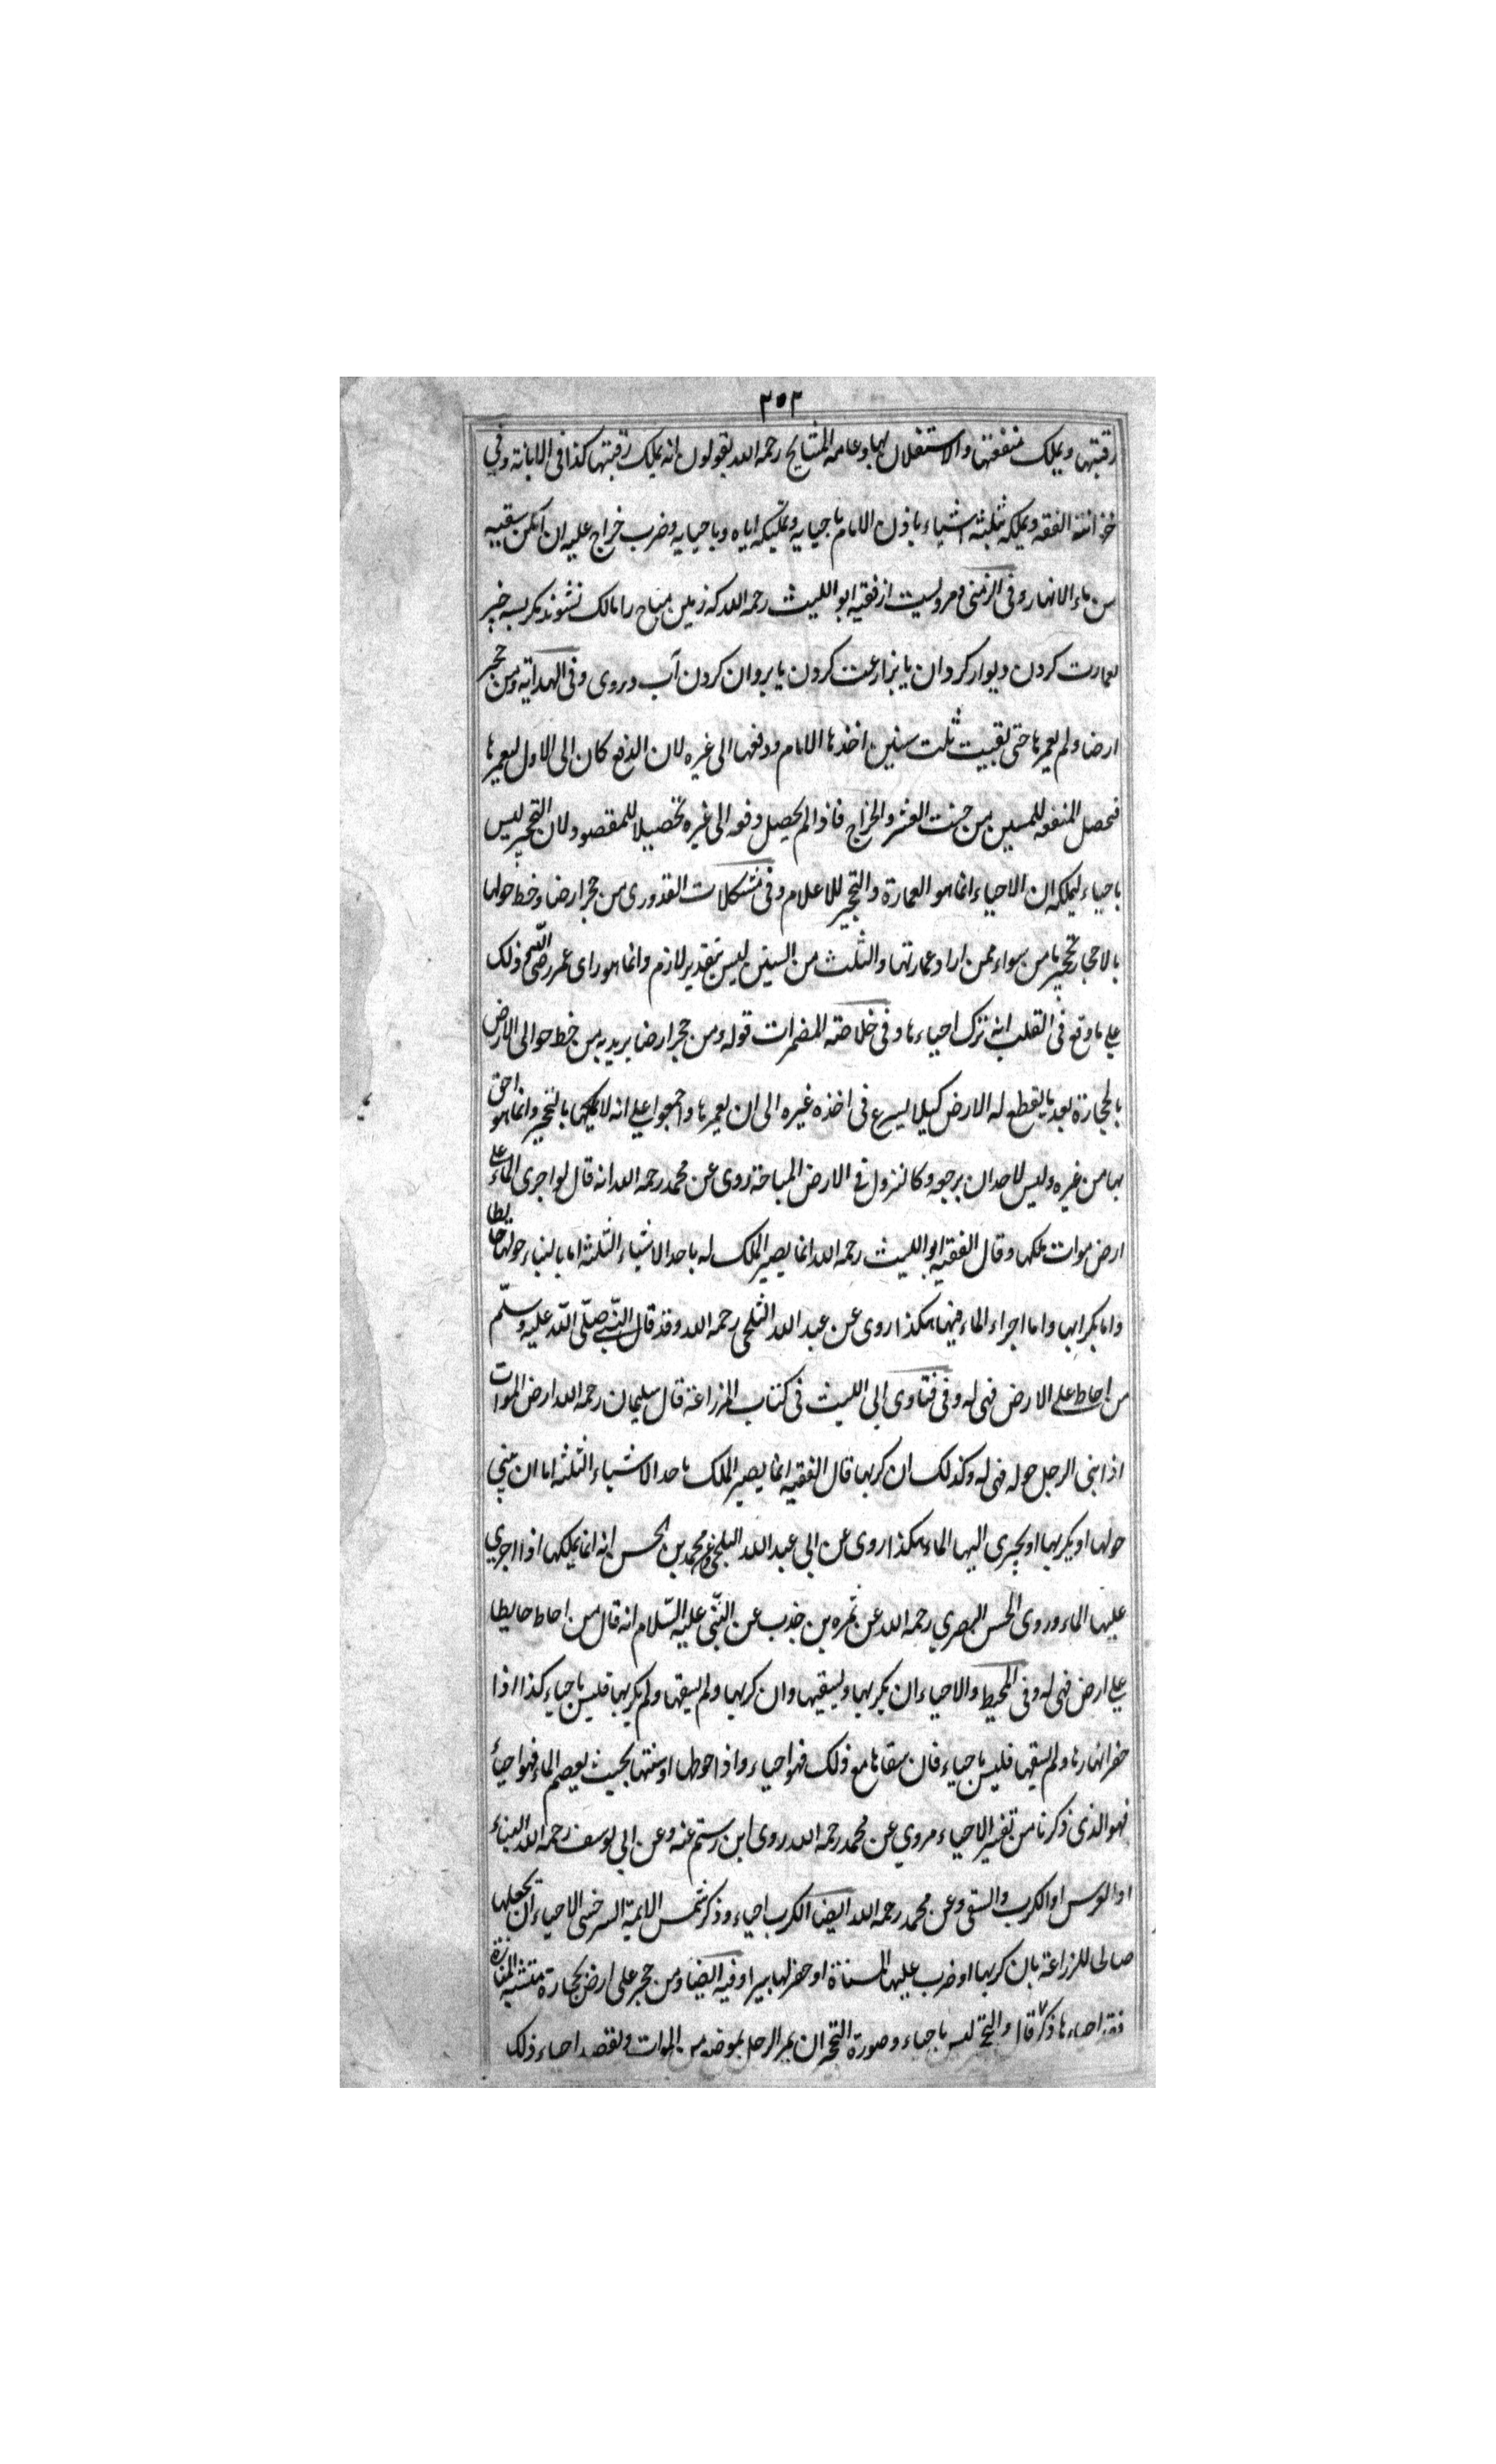 ٣٥٢
رقبتها و يملك منفعتها والاستغلال بها وعامة المشايخ رحمه الله يقولون انه يملك رقبتها كذا فى الابانة وفي
خزانة الفقه ويملكه بثلثة اشياء باذن الامام باحيايه وتمليكه اياه وباحيايه وضرب خراج عليه ان امكن سقيه
من ماء الانهار وفى الزمنى ومرويست از فقيه ابو الليث رحمه الله كه زمين مباح را مالك نشوند مكر بسه چيز
بعمارت كردن ديوار كردان يا بزارعت كردن يا بروان كردن آب دروى وفى الهداية ومن حجر
ارضا ولم يعمرها حتى بقيت ثلث سنين اخذها الامام ودفعها الى غيره لان الدفع كان الى الاول ليعمرها
فتحصل المنفعة للمسلمين من حيث العشر والخراج فاذا لم يحصل دفعه الى غيره تحصيلا للمقصود ولان التحجير ليس
باحياء ليملكه ان الاحياء انما هو العمارة والتحجير للاعلام وفى مشكلات القدورى من حجر ارضا وخط حولها
بالاحجار تحجيرها من سواء ممن اراد عمارتها والثلث من السنين ليس بتقدير لازم وانما هو راى عمر رضى الله ذلك
على ما وقع فى القلب انه ترك احياءها وفى خلاصة المضمرات قوله ومن حجر ارضا يريد به من خط حوالى الارض
بالحجارة بعد ما يقطع له الارض كيلا يسرع فى اخذه غيره الى ان يعمرها واجمعوا على انه لا يملكها بالتحجير وانما هو احق
بها من غيره وليس لاحد ان يرجعه وكالنزول فى الارض المباحة روى عن محمد رحمه الله انه قال لو اجرى الماء على
ارض موات ملكها وقال الفقيه ابو الليث رحمه الله انما يصير الملك له باحد الاشياء الثلثة اما بالبناء حولها حايطا
واما بكرابها واما اجراء الماء فيها هكذا روى عن عبد الله الثلجى رحمه الله وقد قال النبى صلى الله عليه وسلم
من احاط على الارض فهى له وفى فتاوى ابى الليث فى كتاب المزراعة قال سليمان رحمه الله ارض الموات
اذا بنى الرجل حوله فهى له وكذلك ان كربها قال الفقيه انما يصير الملك باحد الاشياء الثلثة اما ان يبنى
حولها او يكربها او يجرى اليها الماء هكذا روى عن ابى عبد الله البلخى وعن محمد بن الحسن انه انما يملكها اذا اجرى
عليها الماء وروى الحسن البصرى رحمه الله عن ثمره بن جندب عن النبى عليه السلام انه قال من احاط حايطا
على ارض فهى له وفى المحيط والاحياء ان يكربها ويسقيها وان كربها ولم يسقها ولم يكربها فليس باحياء كذا اذا
حفر انهارها ولم يسقيها فليس باحياء فان سقاها مع ذلك فهو احياء واذا حوطها او سنتها بحيث يعصم الماء فهو احياء
فهو الذى ذكرنا من تفسير الاحياء مروى عن محمد رحمه الله روى ابن رستم عنه وعن ابى يوسف رحمه الله البناء
او الغرس او الكرب والسقى وعن محمد رحمه الله ايضا الكرب احياء وذكر شمس الايمة السرخسى الاحياء ان يجعلها
صالحا للزراعة بان كربها او ضرب عليها المسناة او حفر لها بيرا وفيه ايضا ومن حجر على ارض بحجارة المنارة
فقد احياءها ذكر قال والتحجير ليس باحياء وصورة التحجير ان يمر الرجل بموضع من الموات ويقصد احياء ذلك